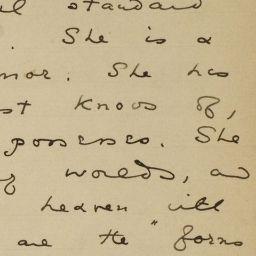 standard
. She is a
. She has
st knows of,
possesses. She
worlds, and
heaven will
are the "forms